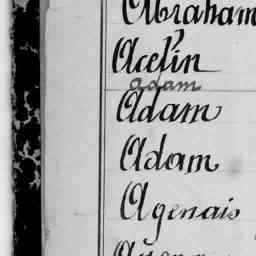 Abraham
Acelin
adam
Adam
Adam
Agenais